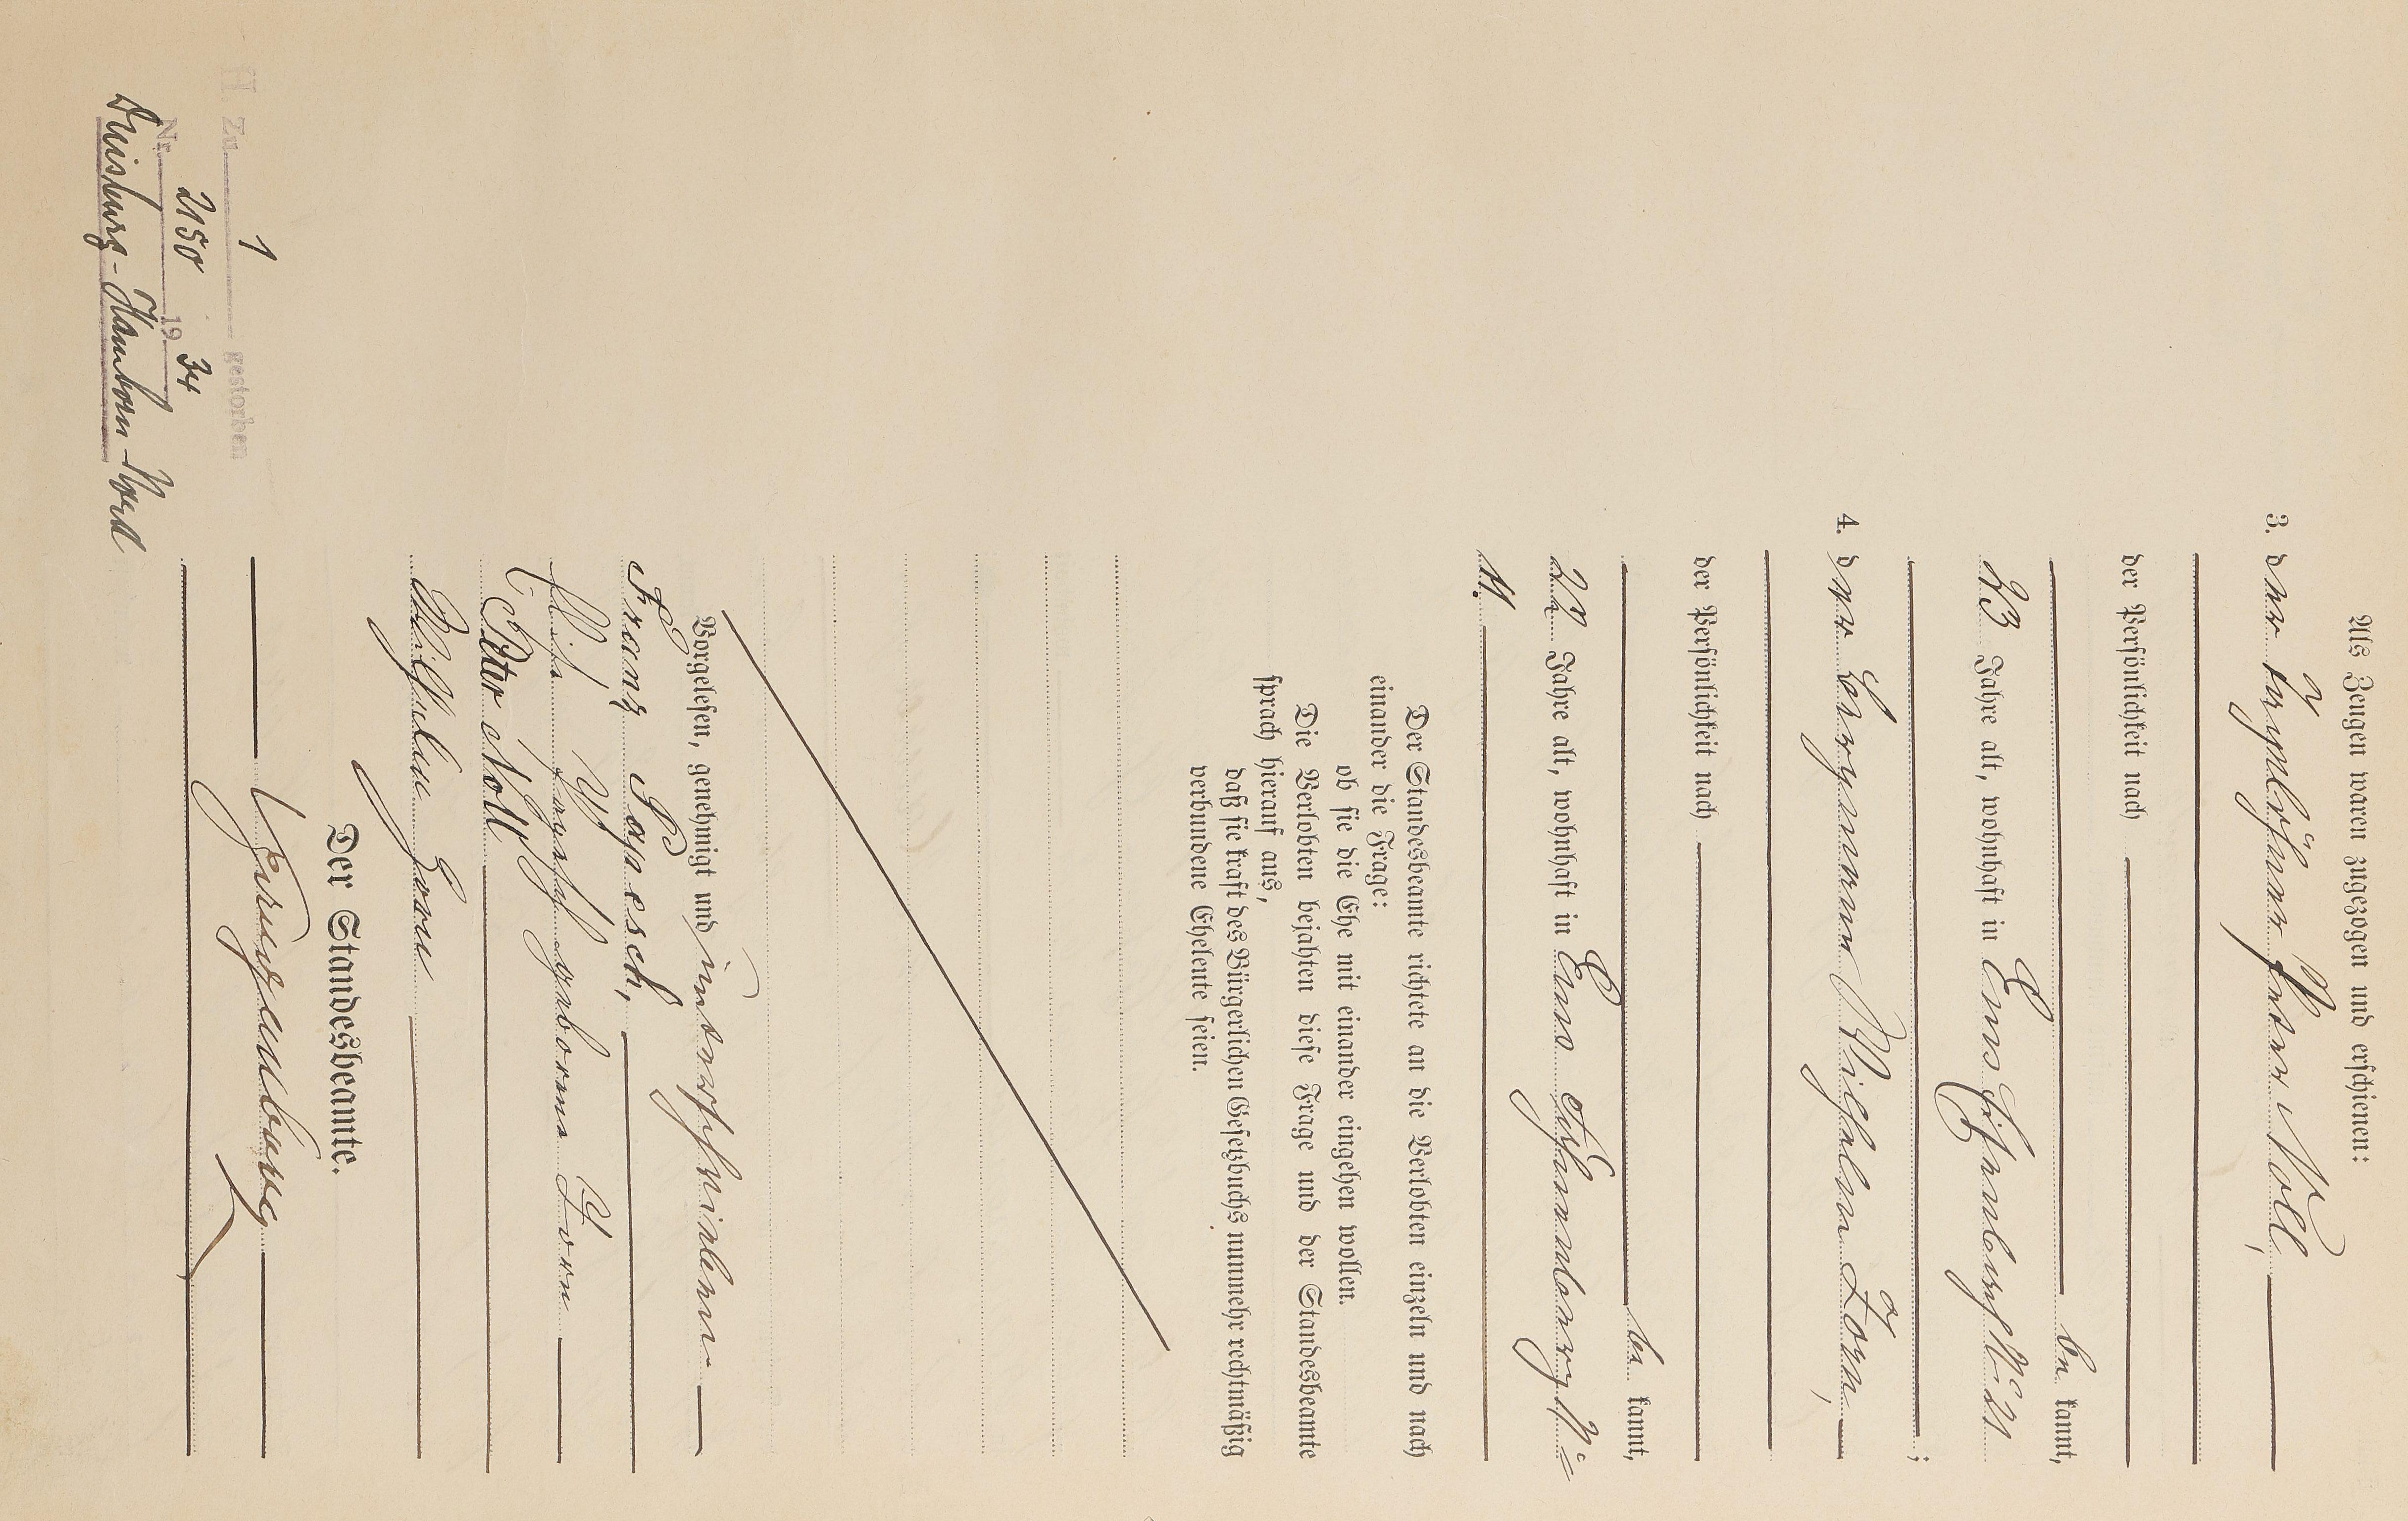 Als Zeugen waren zugezogen und erschienen:
3. der Tagelöhner Peter Noll,
der Persönlichkeit nach
be kannt,
23 Jahre alt, wohnhaft in Ems
;
4. der Bergmann Wilhelm Zorn,
der Persönlichkeit nach
be kannt,
22 Jahre alt, wohnhaft in Ems
11.
Der Standesbeamte richtete an die Verlobten einzeln und nach
einander die Frage:
ob sie die Ehe mit einander eingehen wollen.
Die Verlobten bejahten diese Frage und der Standesbeamte
sprach hierauf aus,
daß sie kraft des Bürgerlichen Gesetzbuchs nunmehr rechtmäßig
verbundene Eheleute seien.
Vorgelesen, genehmigt und unterschrieben
Franz
geborene Zorn
Peter Noll
Wilhelm Zorn
Der Standesbeamte.
H. Zu 1 gestorben
Nr. 2150 19 34
Duisburg-Hamborn-Nord